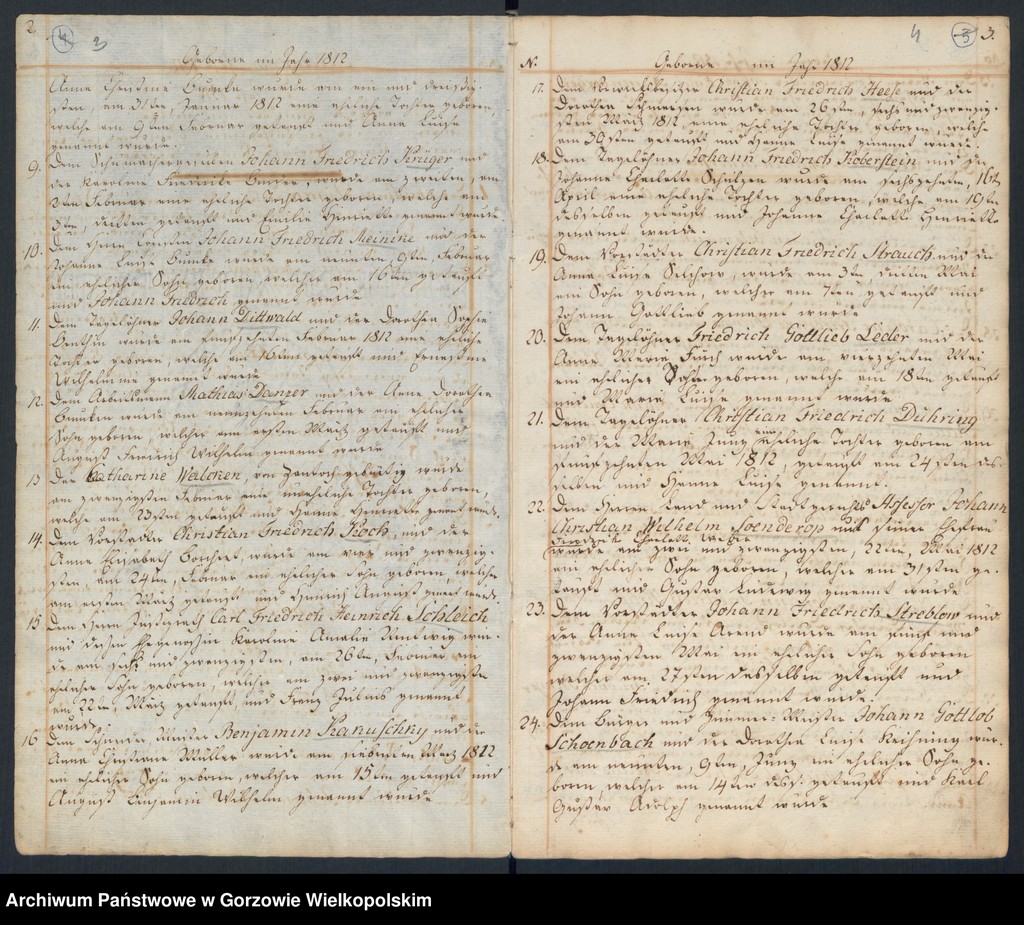 2.
3
Geborne im Jahr 1812
Anna Christine Buncke wurde am ein und dreißig-
sten, am 31ten, Januar 1812 eine eheliche Tochter geboren,
welche am 9ten Februar getauft und Anna Luise
genannt wurde.
9. Dem Schumachergesellen Johann Friedrich Krüger und
der Karoline Friedricke, wurde am zweiten, am
2ten Februar eine eheliche Tochter geboren, welche am
getauft und Emilie Henriette genannt wurde
10. Dem Herrn Johann Friedrich Meinicke und der
Johanne Luise Buncke wurde am neunten, 9ten Februar
ein ehelicher Sohn geboren, welcher am 16ten getauft
und Johann Friedrich genannt wurde
11. Dem Tagelöhner Johann Dittwald und der Dorothea Sophie
wurde am funfzehnten Februar 1812 eine eheliche
Tochter geboren, welche am 16ten getauft und Ernestine
Wilhelmine genannt wurde
12. Dem Arbeitsmann Mathias Danzer und der Anne Dorothea
wurde am neunzehnten Februar ein ehelicher
Sohn geboren, welcher am ersten März getauft und
August Friedrich Wilhelm genannt wurde
13 Der Catharine Walcken, von Zantoch gebürtig wurde
am zwanzigsten Februar eine uneheliche Tochter geboren,
welche am 23sten getauft und Hanne Henriette genannt wurde.
14. Dem Vorstädter Christian Friedrich Koch, und der
Anne Elisabeth Borchert wurde am vier und zwanzig-
sten, am 24ten, Februar ein ehelicher Sohn geboren, welcher
am ersten März getauft und Heinrich August genannt wurde.
15 Dem Herrn Justizrath Carl Friedrich Heinrich Schleich
und dessen Ehegenossin Karoline Amalie wur-
de am sechs und zwanzigsten, am 26ten, Februar ein
ehelicher Sohn geboren, welcher am zwei und zwanzigsten
am 22ten, März getauft, und Franz Julius genannt
wurde.
16 Dem Meister Benjamin Kanuschky und der
Anna Christiane Müller wurde am siebenten März 1812
ein ehelicher Sohn geboren, welcher am 15ten getauft und
August Benjamin Wilhelm genannt wurde
4 3.
N. Geborne im Jahr 1812
17. Dem Christian Friedrich Heese und der
Dorothea wurde am 26sten, sechs und zwanzig-
sten März 1812, eine eheliche Tochter geboren, welche
am 30sten getauft und Hanne Luise genannt wurde.
18. Dem Tagelöhner Johann Friedrich Koberstein und der
Johanne Charlotte Schulzen wurde am sechszehnten, 16ten
April eine eheliche Tochter geboren, welche am 19ten
desselben getauft und Johanne Charlotte Henriette
genannt wurde.
19. Dem Vorstädter Christian Friedrich Strauch und der
Anna Luise Selchow, wurde am 3ten dritten Mai
ein Sohn geboren, welcher am 7ten getauft und
Johann Gottlieb genannt wurde
20. Dem Tagelöhner Friedrich Gottlieb Leder und der
Anne Maria wurde am vierzehnten Mai
ein ehelicher geboren, welche am 18ten getauft
und Maria Luise genannt wurde
21. Dem Tagelöhner Christian Friedrich Dühring
und der Maria Jung eine eheliche Tochter geboren am
funfzehnten Mai 1812, getauft am 24sten des-
selben und Hanne Luise genannt.
22. Dem Herrn Land und Stadtgerichts Assessor Johann
Christian Wilhelm Soenderop und seiner Ehefrau
Friedricke Charlott.
wurde am zwei und zwanzigsten, 22ten, Mai 1812
ein ehelicher Sohn geboren, welcher am 31sten ge-
tauft und Gustav Ludewig genannt wurde
23. Dem Vorstädter Johann Friedrich Streblow und
der Anne Luise Arend wurde am fünf und
zwanzigsten Mai ein ehelicher Sohn geboren
welcher am 27sten desselben getauft und
Johann Friedrich genannt wurde.
24. Dem Bürger und Zimmer-Meister Johann Gottlob
Schoenbach und der Dorothea Luise wur-
de am neunten, 9ten, Juny ein ehelicher Sohn ge-
boren, welcher am 14ten dess: getauft und Karl
Gustav Adolph genannt wurde
Archiwum Państwowe w Gorzowie Wielkopolskim